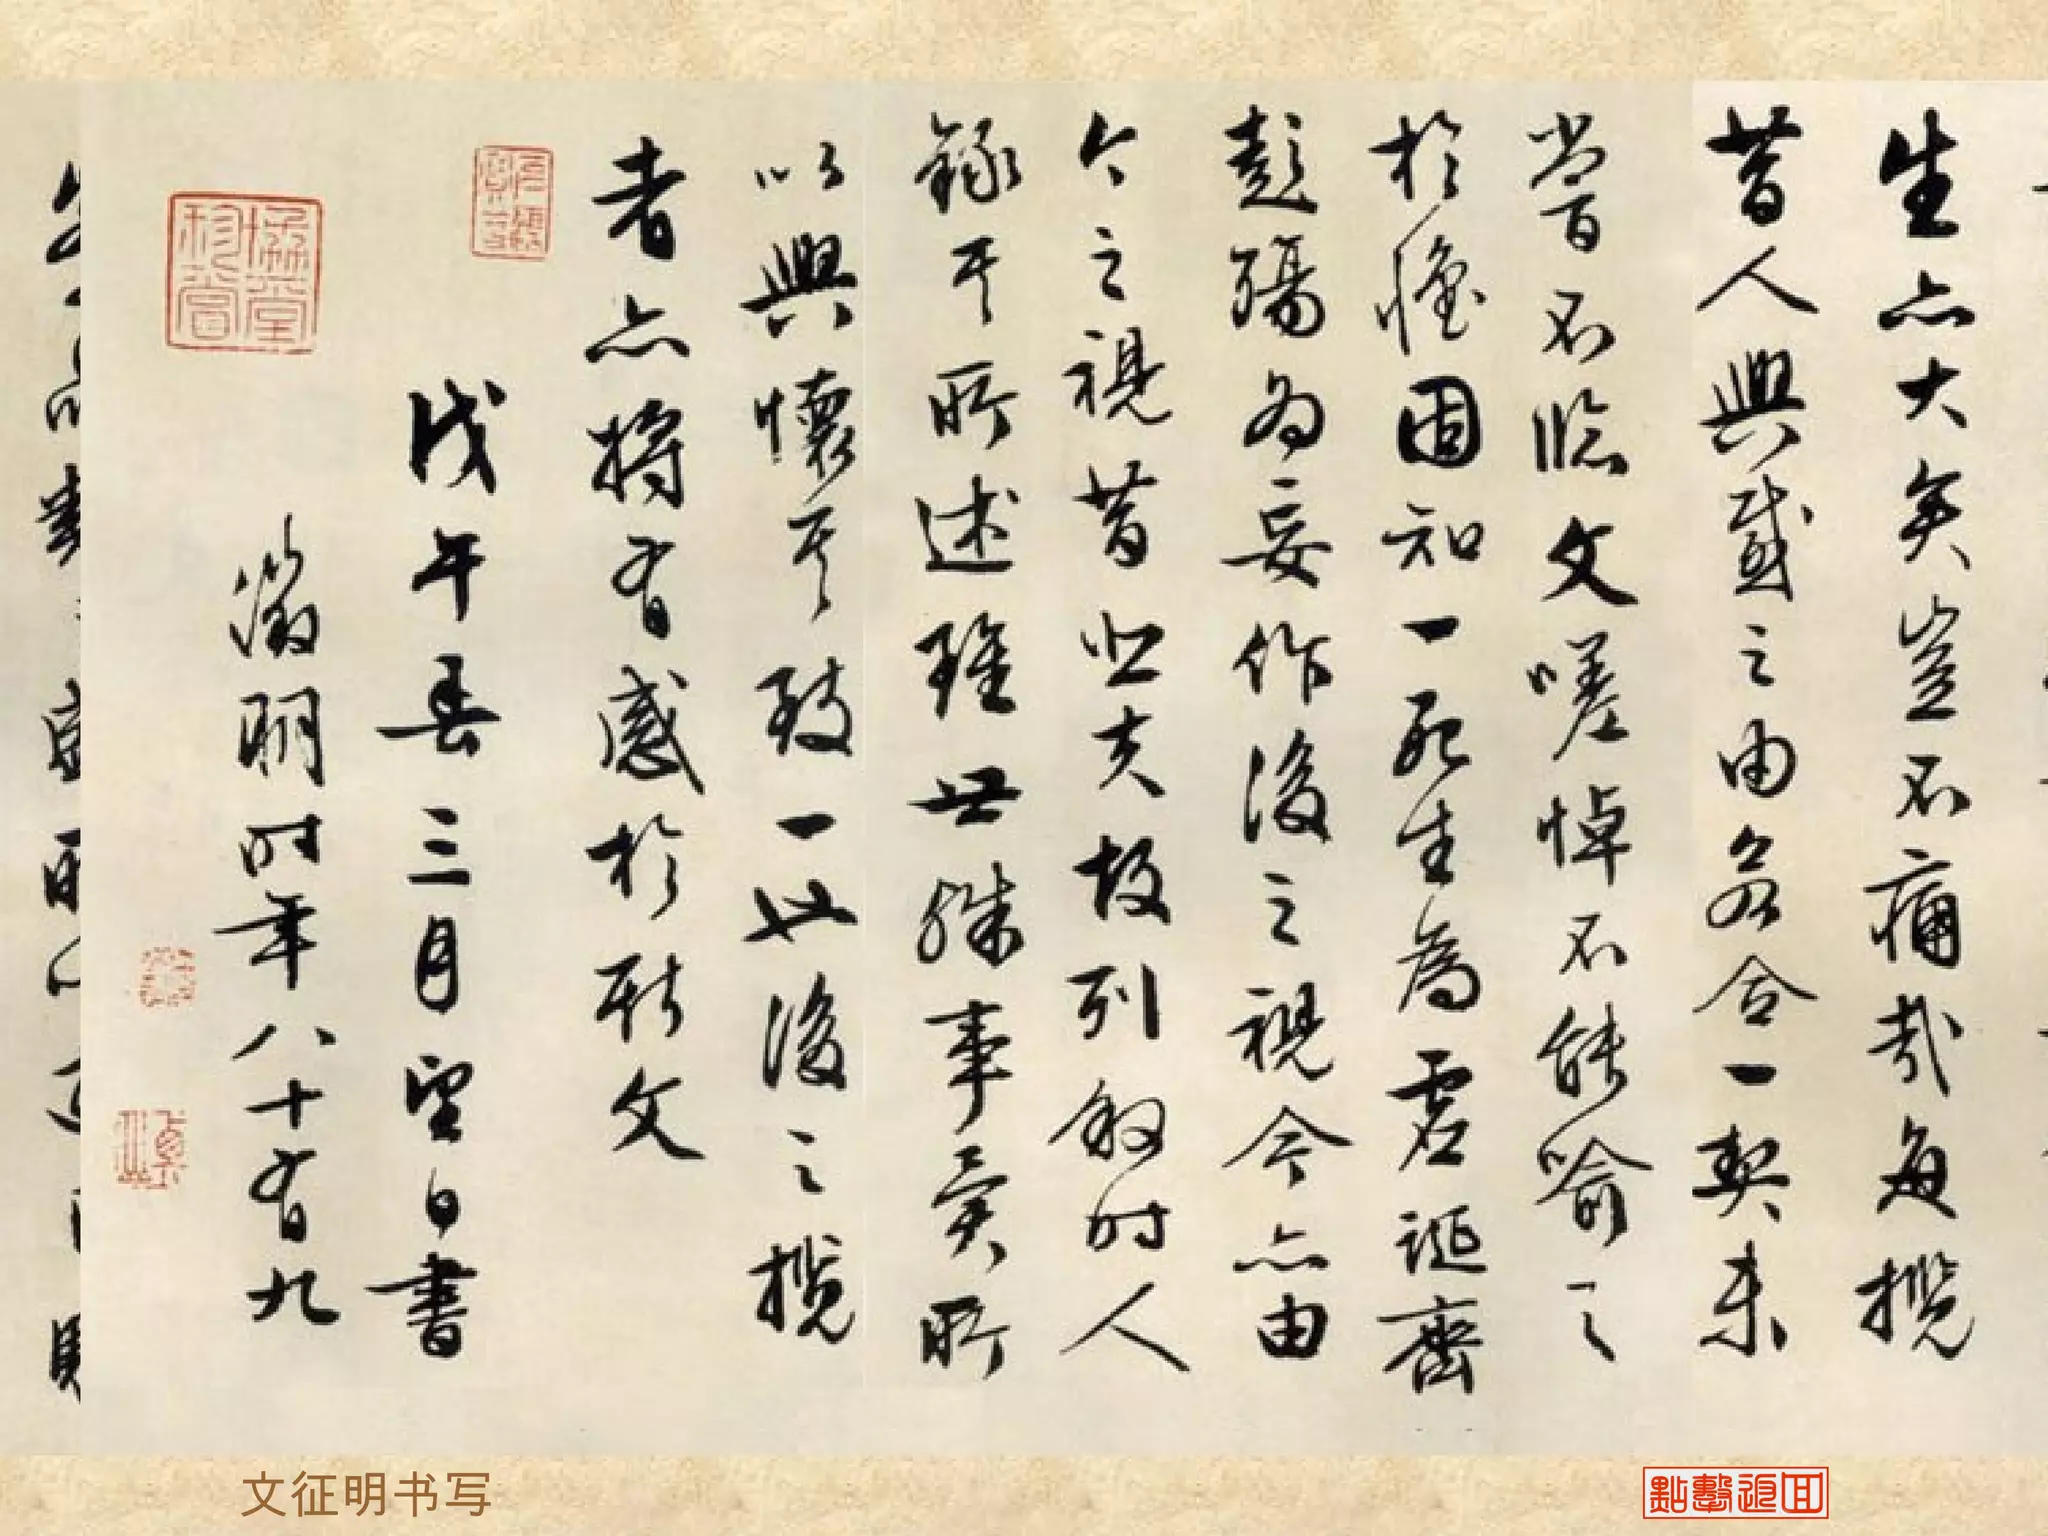 生亦大矣豈不痛哉每攬
昔人興感之由若合一契未
嘗不臨文嗟悼不能喻之
於懷固知一死生為虛誕齊
彭殤為妄作後之視今亦由
今之視昔悲夫故列叙时人
錄其所述雖世殊事異所
以興懷其致一也後之攬
者亦將有感於斯文
戊午春三月望日書
徵明时年八十有九
文征明书写
點擊返回